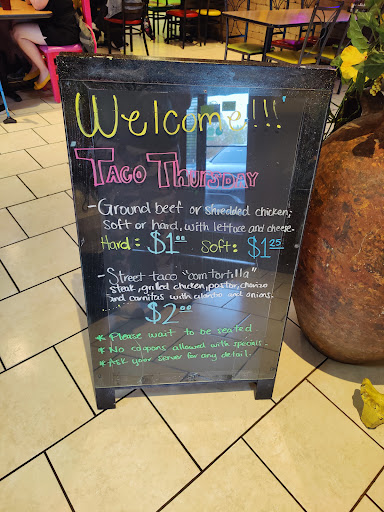 Welcome!!!
Taco Thursday
- Ground beef or shredded chicken;
soft or hard, with lettuce and cheese.
Hard: $1.00 Soft: $1.25
- Street taco "corn tortilla"
steak, grilled chicken, pastor, chorizo
and carnitas with cilantro and onions.
.... $2.00
* Please wait to be seated.
* No coupons allowed with specials.
* Ask your server for any detail.